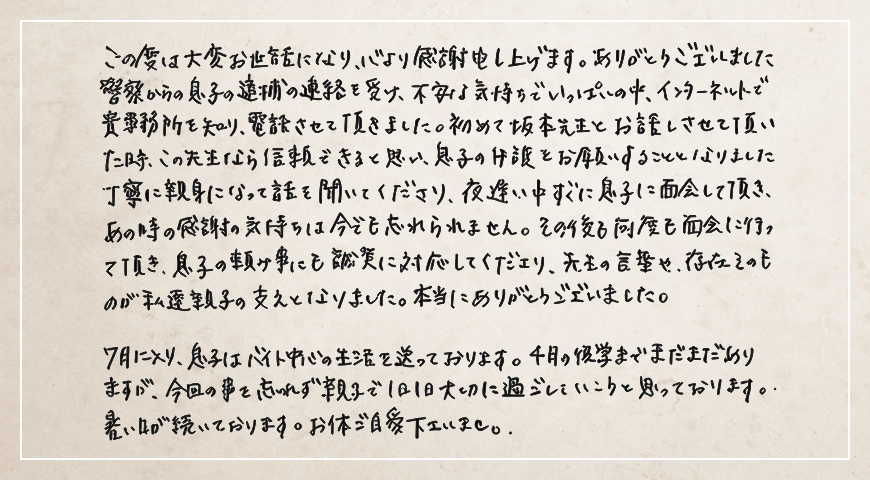 この度は大変お世話になり、心より感謝申し上げます。ありがとうございました
警察からの息子の逮捕の連絡を受け、不安な気持ちでいっぱいの中、インターネットで
貴事務所を知り、電話させて頂きました。初めて坂本先生とお話しさせて頂い
た時、この先生なら信頼できると思い、息子の弁護をお願いすることとなりました
丁寧に親身になって話を聞いてくださり、夜遅い中すぐに息子に面会して頂き、
あの時の感謝の気持ちは今でも忘れられません。その後も何度も面会に行っ
て頂き、息子の頼み事にも誠実に対応してくださり、先生の言葉や、存在そのも
のが私達親子の支えとなりました。本当にありがとうございました。
7月に入り、息子はバイト中心の生活を送っております。4月の復学までまだまだあり
ますが、今回の事を忘れず親子で1日1日大切に過ごしていこうと思っております。
暑い日が続いております。お体ご自愛下さいませ。